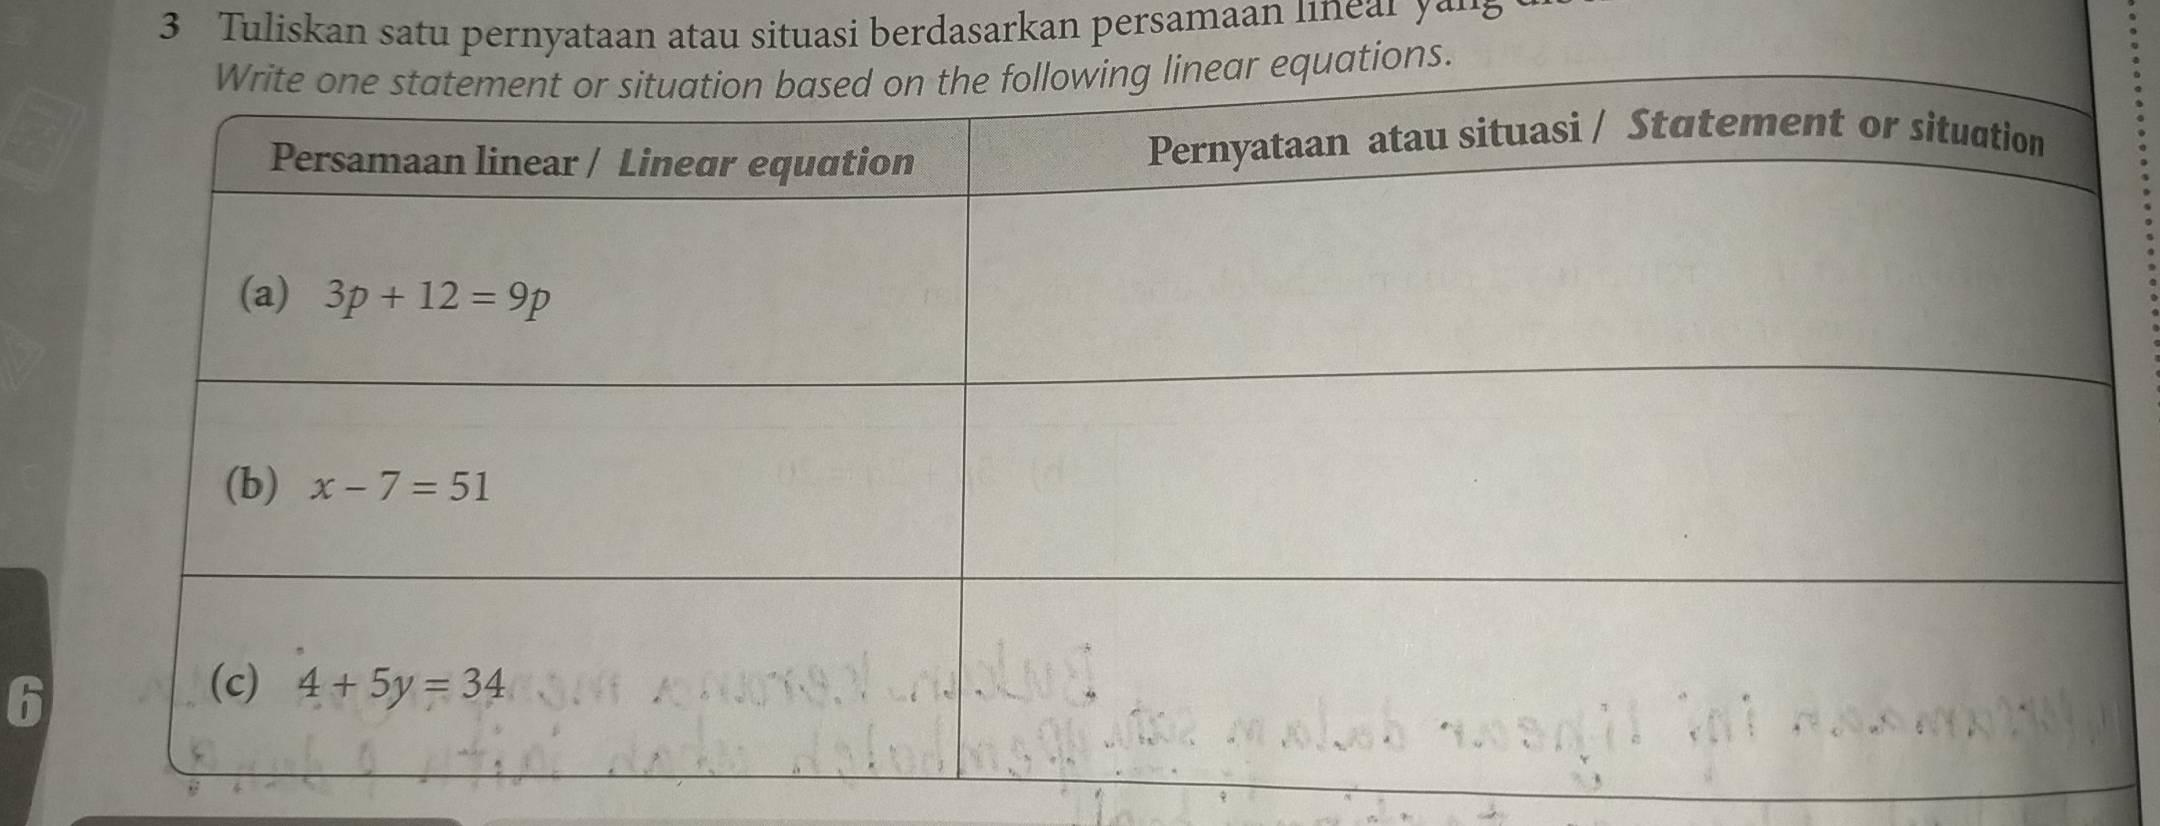 3 Tuliskan satu pernyataan atau situasi berdasarkan persamaan linear yang
Write one statement or situation based on the following linear equations.
Persamaan linear / Linear equation
Pernyataan atau situasi / Statement or situation
(a) 3p + 12 = 9p
(b) x – 7 = 51
(c) 4 + 5y = 34
6